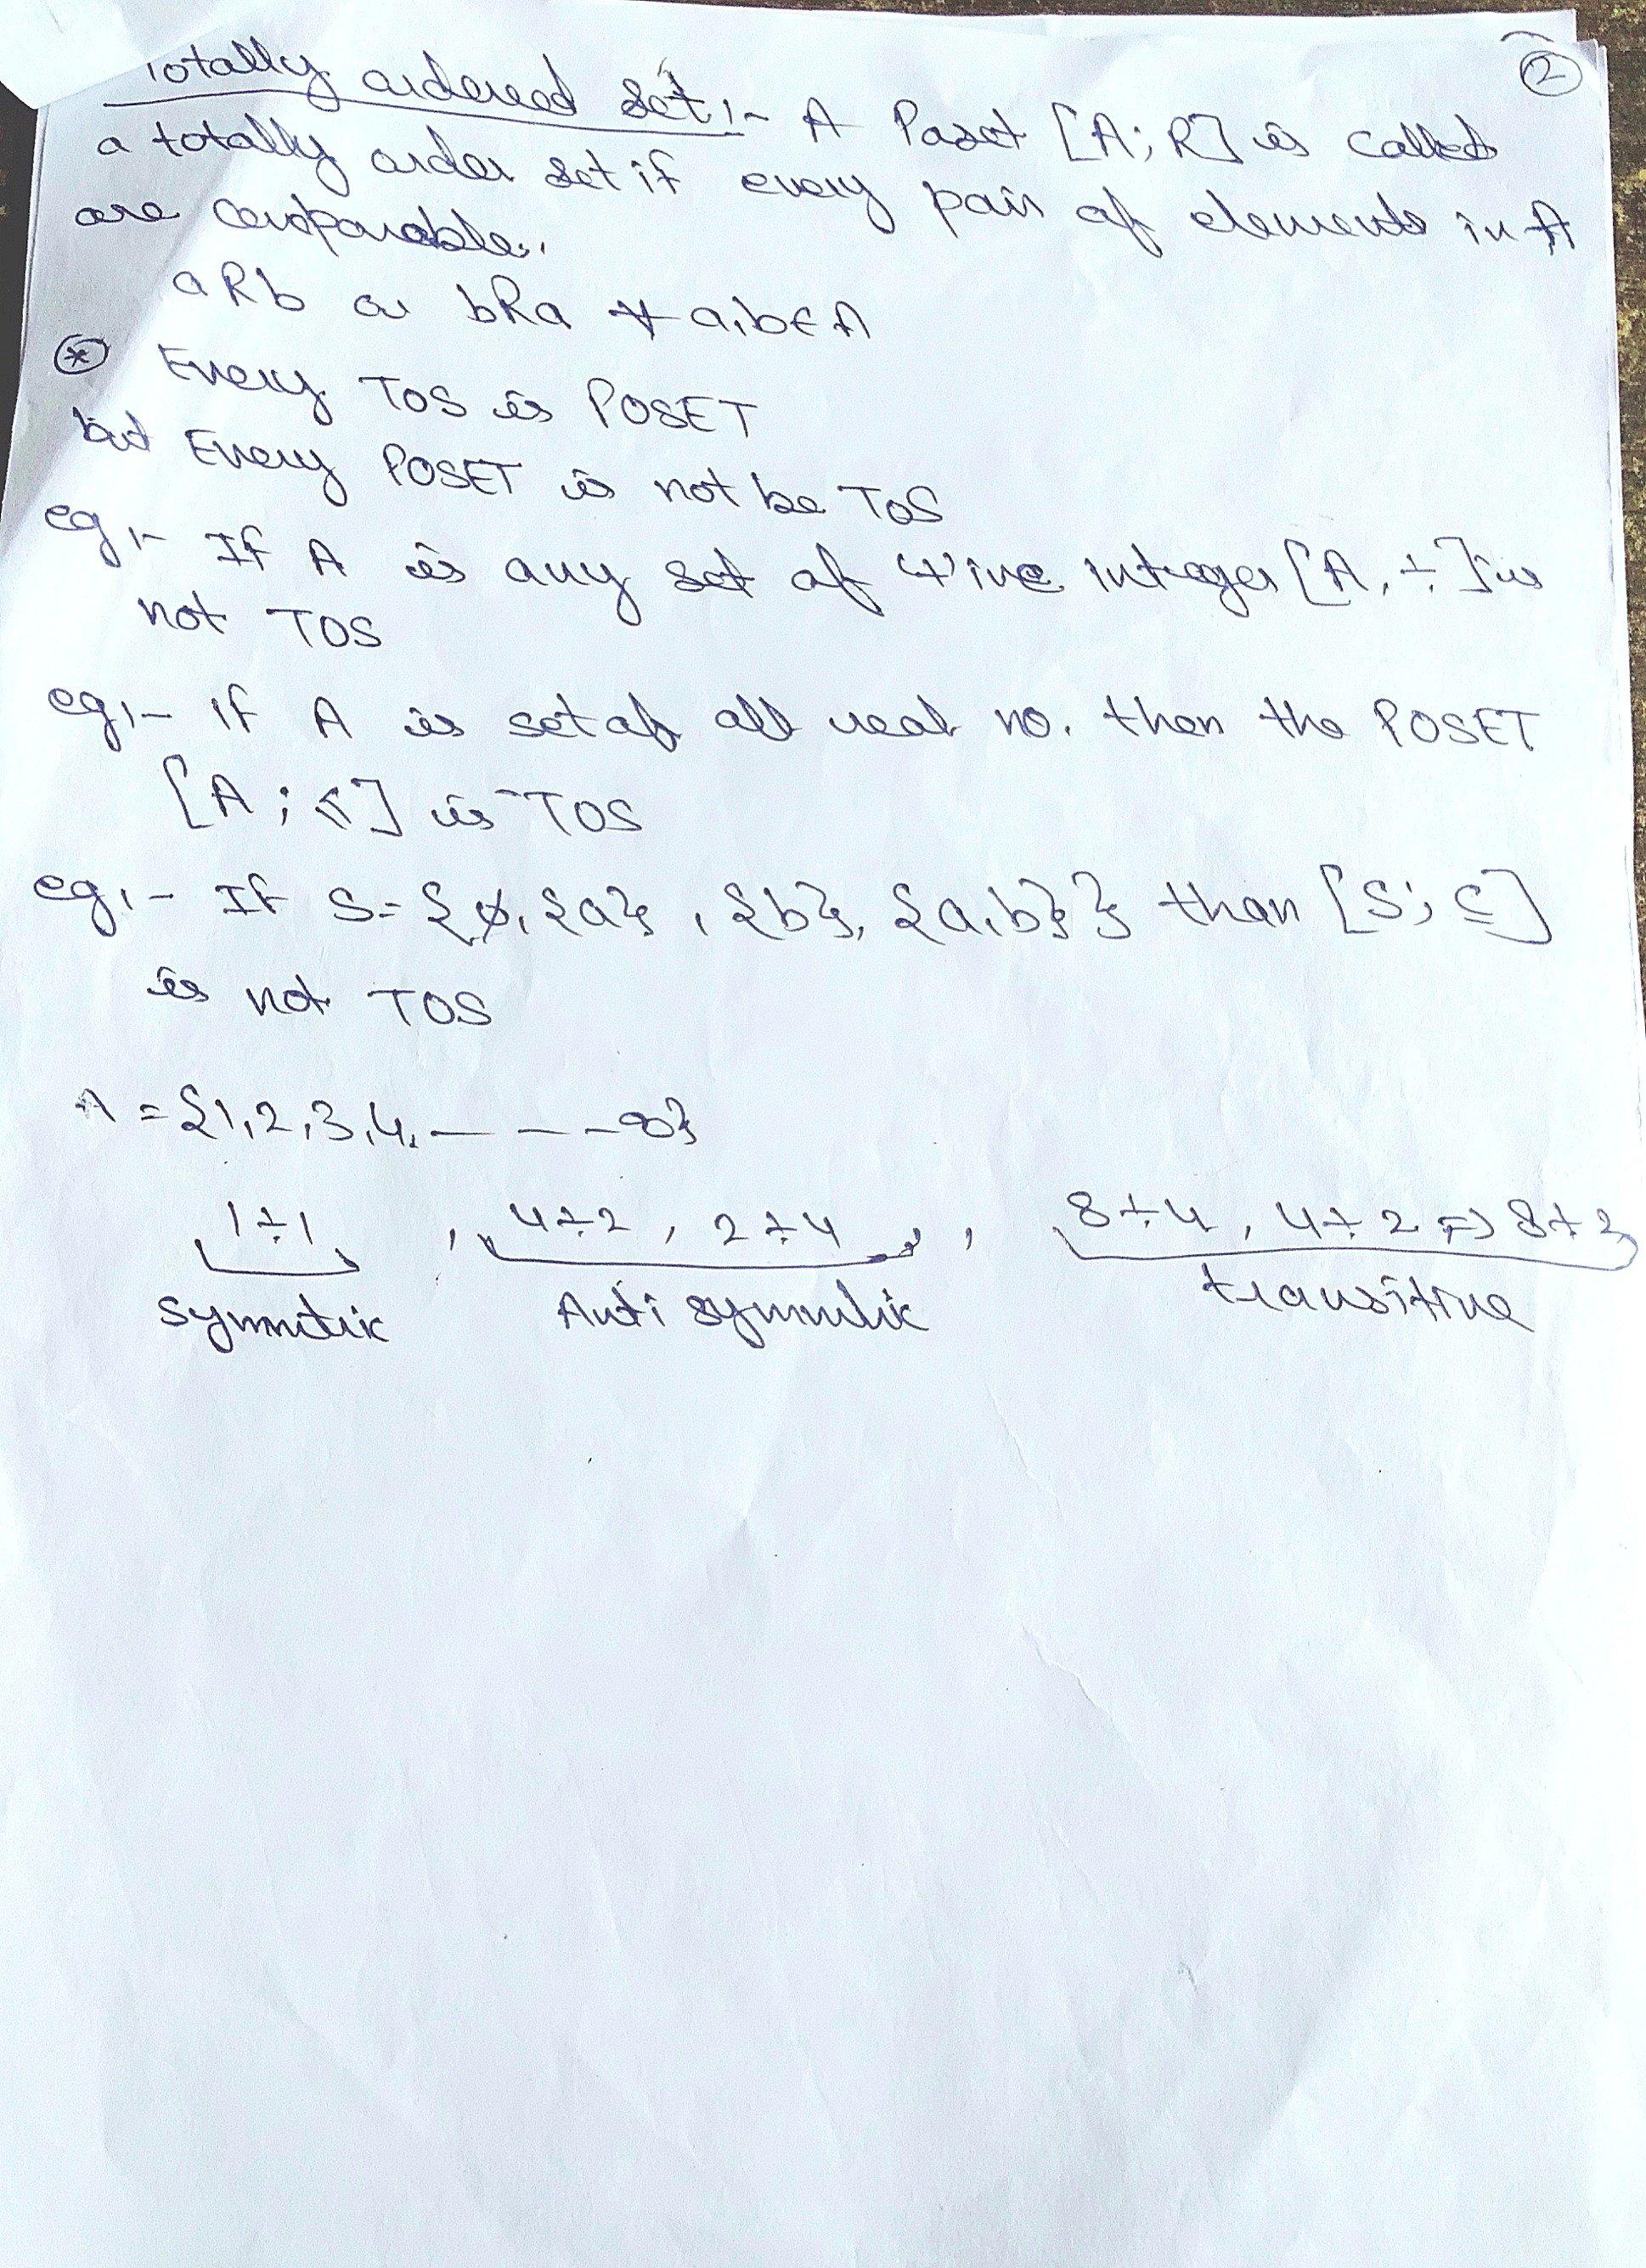 ②
Totally ordered set :- A Poset [A; R] is called
a totally order set if every pair of elements in A
are comparable.
aRb or bRa ∀ a,b∈A
⊛ Every TOS is POSET
but Every POSET is not be TOS
eg:- If A is any set of +ive integer [A, ÷] is
not TOS
eg:- if A is set of all real no. then the POSET
[A; ≤] is TOS
eg:- If S= {ϕ, {a}, {b}, {a,b}} than [S; ⊆]
is not TOS
A = {1,2,3,4, - - - - ∞}
1÷1 , 4÷2 , 2÷4 , 8÷4 , 4÷2 => 8÷2
Symmetric Anti symmetric transitive